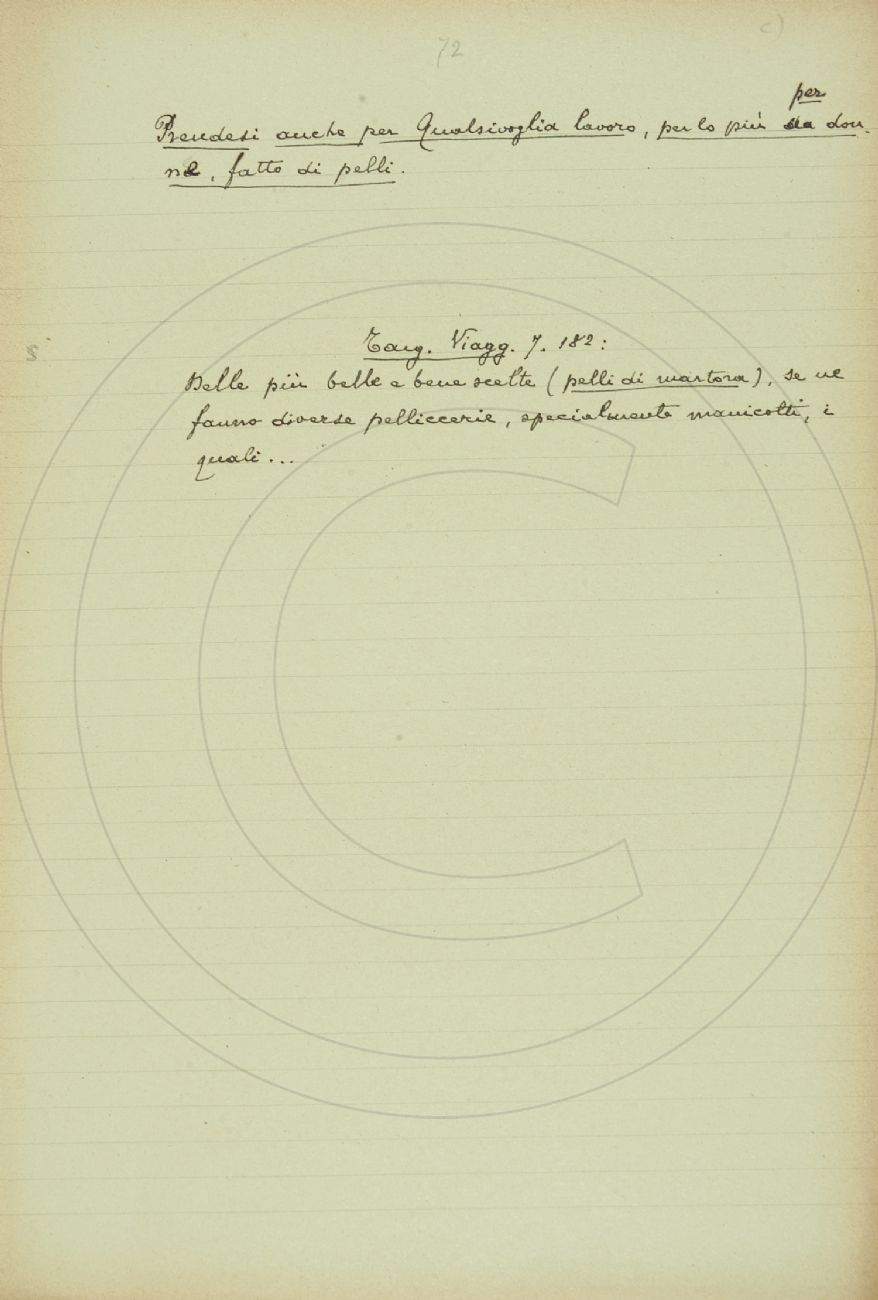 72
c)
per
Prendesi anche per Qualsivoglia lavoro, per lo più da don-
ne, fatto di pelli.
Targ. Viagg. 7. 182:
Delle più belle e bene scelte (pelli di martora), se ne
fanno diverse pelliccerie, specialmente manicotti, i
quali...